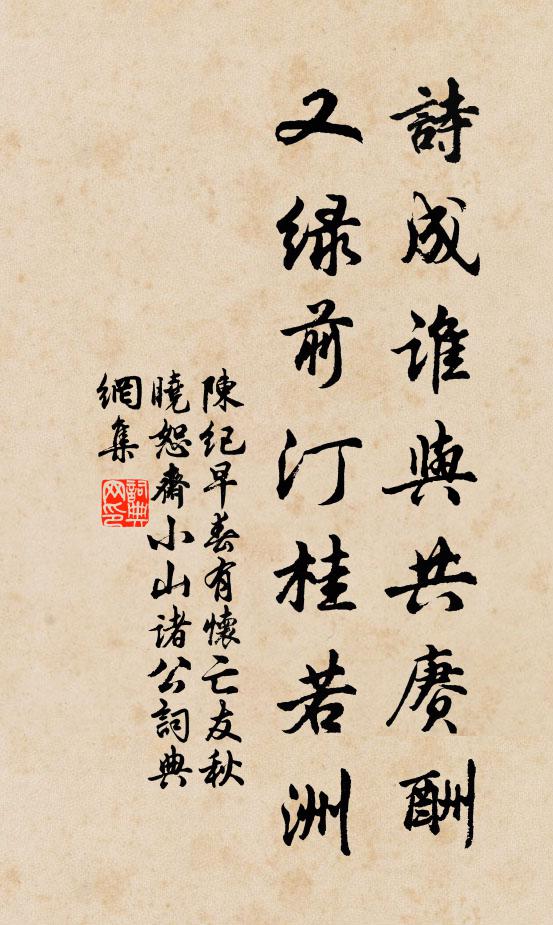 詩成誰與共賡酬
又緑前汀桂若洲
陳紀早春有懷亡友秋
曉恕齋小山諸公詞典
網集
詞典網印